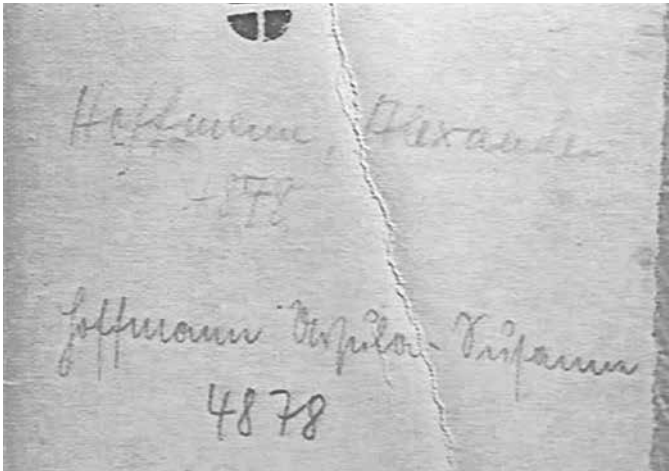 Hoffmann, Alexander
4878
Hoffmann Ursula-Susanna
4878